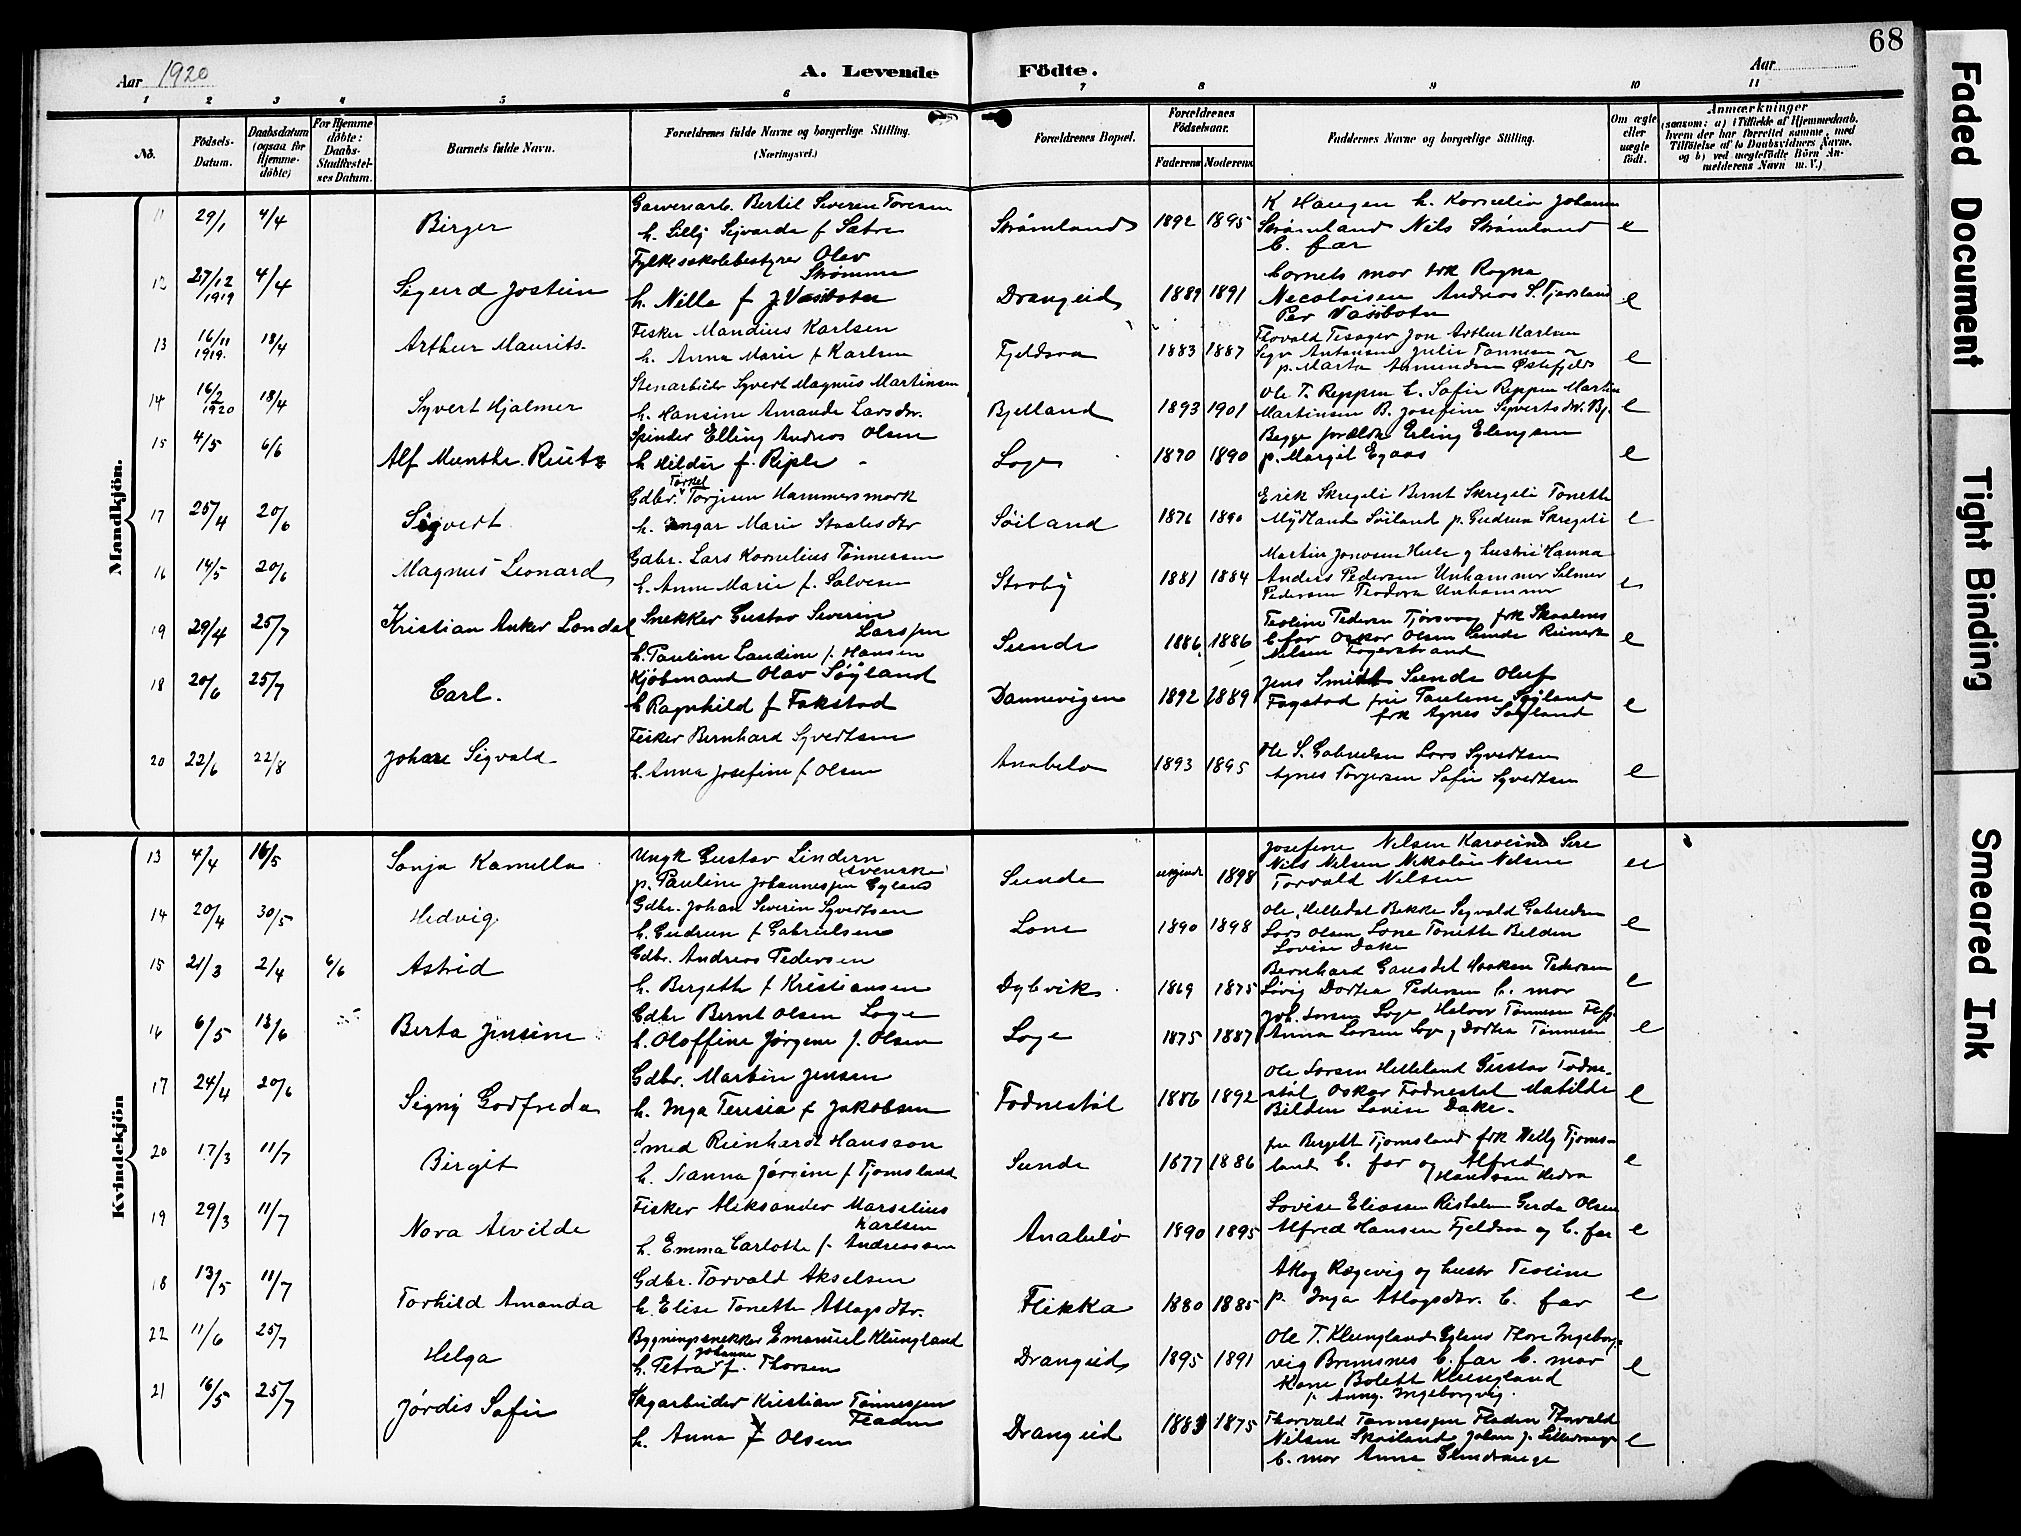 68
Aar 1920
A. Levende Födte.
Aar
1 2 3 4 5 6 7 8 9 10 11
No.
Födsels-Datum.
Daabsdatum (ogsaa for Hjemme-döbte)
For Hjemme döbte: Daabs-Stadfæstel-ses Datum.
Barnets fulde Navn.
Forældrenes fulde Navne og borgerlige Stilling. (Næringsvei.)
Forældrenes Bopæl.
Forældrenes Födselsaar.
Faderens Moderens
Faddernes Navne og borgerlige Stilling.
Om ægte eller uægte födt.
Anmærkninger
(saasom: a) i Tilfælde af Hjemmedaab, hvem der har forrettet samme, med Tilföielse af to Daabsvidners Navne, og b) ved uegtefödte Börn An-melderens Navn m. V.)
Mandkjön.
11 29/1 4/4 Birger
Garveriarb. Bertil Severin Toresen
h. Lilly Sigvarda f Sætre
Strømland 1892 1895
K Haugen h. Kornelia Johanne
Strømland Nils Strømland
b. far
e
12 27/12 1919 4/4 Sigurd Jostein
Fylkesskolebestyrer Olav
Strømme
h. Nilla f J. Vasbotn
Drangeid 1889 1891
barnets mor frk Ragna
Necolaisen Andreas S. Fjersland
Per Vasbotn
e
13 16/11 1919. 18/4 Arthur Maurits.
Fisker Mandius Karlsen
h. Anna Marie f Karlsen
Fjeldsaa 1883 1887
Thorvald Jon Arthur Karlsen
Antonsen Julie Tønnesen
p. Marta Amundsen Østefjeld
e
14 16/2 1920 18/4 Syvert Hjalmer
Stenarbeider Syvert Magnus Martinsen
h. Hansine Amanda Larsdtr.
Bjelland 1893 1901
Ole T. Reppen h. Sofie Reppen Martin
Martinsen B. Josefine Syvertsdtr. Bj.
e
15 4/5 6/6 Alf Munthe. Reutz
Spinder Elling Andreas Olsen
h Hildur f. Riple
Loge 1870 1890
Begge forældre Erling Elingsen
p. Margit Egaas
e
17 25/4 20/6 Sigvert
Gdbr. Torkel Torjesen Hammersmark
h. Ingar Marie Staalesdtr
Søiland 1876 1890
Erik Skregeli Bernt Skregeli Tonette
Mydland Søiland p. Gudrun Skregeli
e
16 14/5 20/6 Magnus Leonard
Gdbr. Lars Kornelius Tønnessen
h. Anne Marie f. Salvesen
Stroby 1881 1884
Martin Jonassen Hule og hustru Hanna
Anders Pedersen Unhammer Selmer
Pedersen Teodora Unhammer
e
19 29/4 25/7 Kristian Anker Londal
Snekker Gustav Severin
Larssen
h. Pauline Laudine f. Hansen
Sunde 1886 1886
Teoline Pedersen Tjørsvaag frk Skaalnes
b. far Oskar Olsen Sunde Reinert
Nilsen Fogerstrand
e
18 20/6 25/7 Carl.
Kjøbmand Olav Søyland
h Ragnhild f Fakstad
Dannevigen 1892 1889
Jens Smith Sunde Oluf
Fagstad fru Pauline Søyland
frk Agnes Søyland
e
20 22/6 22/8 Johan Sigvald
Fisker Bernhard Syvertsen
h. Anna Josefine f Olsen
Anabelø 1893 1895
Ole S. Gabrielsen Lars Syvertsen
Agnes Torgersen Sofie Syvertsen
e
Kvindekjön
13 4/4 16/5 Sonja Kamilla
Ungk Gustav Lindern
(svenske)
p. Pauline Johannessen Egeland
Sunde 1898
Josefine Nilsen Karoline Sire
Nils Nilsen Nikolai Nilsen
Torvald Nilsen
u
14 20/4 30/5 Hedvig
Gdbr. Johan Severin Syvertsen
h. Gudrun f Gabrielsen
Lone 1890 1898
Ole Helledal Bakke Sigvald Gabrielsen
Lars Olsen Lone Tonette Bilden
Lovise Dake
e
15 21/3 2/4 6/6 Astrid
Gdbr. Andreas Pedersen
h. Bergette f Kristiansen
Dybvik 1869 1875
Bernhard Gausdal Haakon Pedersen
Løvig Dortea Pedersen b. mor
e
16 6/5 13/6 Berta Jensine
Gdbr Bernt Olsen Loge
h. Oloffine Jørgine f. Olsen
Loge 1875 1887
Joh. Larsen Loge Halvor Tønnesen
Anna Larsen Loge, Dortea Tønnesen
e
17 24/4 20/6 Signy Godfreda
Gdbr. Martin Jensen
h. Inga Teresia f Jakobsen
Fodnestøl 1886 1892
Ole Larsen Helleland Gustav Fodne-
støl Oskar Fodnestøl Matilde
Bilden Lovise Dake.
e
20 17/3 11/7 Birgit
Smed Reinhardt Hansson
h. Nanna Jørsine f Tjomsland
Sunde 1877 1886
fru Bergett Tjomsland frk Nelly Tjoms-
land b. far og Alfred
Hansson Hidra
e
19 29/3 11/7 Nora Alvilde
Fisker Aleksander Marselius
Karlsen
h. Emma Carlotte f. Andreassen
Anabelø 1890 1895
Lovise Eliassen Gerda Olsen
Alfred Hansen Fjeldsaa og b. far
e
18 13/5 11/7 Torhild Amanda
Gdbr. Torvald Akselsen
h. Elise Tonette Atlagsdtr.
Flikka 1880 1885
Atlag Rægevig og hustr Teoline
p. Inga Atlagsdtr. b. far
e
22 11/6 25/7 Helga
Bygningssnekker Emanuel Klungland
h. Petra Johanne f. Thorsen
Drangeid 1895 1891
Ole T. Klungland Thore Ingeborg-
vig Bremsnes b. far b. mor
Kone Bolett Klungland
p. Anng. Ingeborgvig.
e
21 16/5 25/7 Jørdis Sofie
Skogarbeider Kristian Tønnessen
Fladen
h. Anna f Olsen
Drangeid 1883 1875
Thorvald Tønnessen Fladen Thorvald
Nilsen Skoiland Johan p. Lilledrange
b. mor Anna Glendrange
e
Faded Document
Tight Binding
Smeared Ink